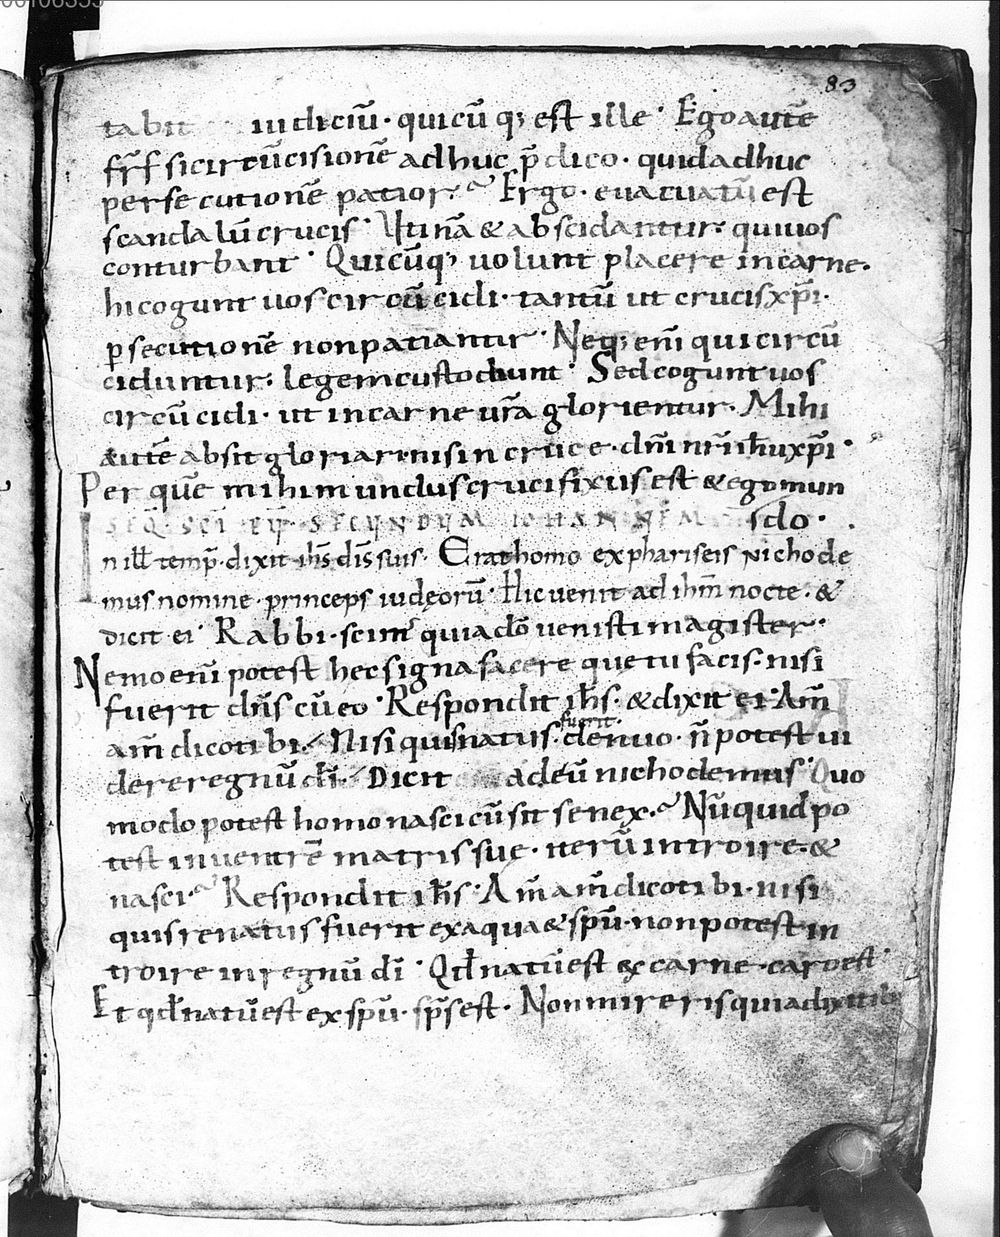 00106355
83
tabit iudiciū· quicūq; est ille· Ego autē
fr̄s si circūcisionē adhuc p̄dico· quid adhuc
persecutionē patior· Ergo· euacuatū est
scandalū crucis· Utinā & abscidantur· qui uos
conturbant· Quicūq; uolunt placere in carne·
hi cogunt uos circūcidi· tantū ut crucis xp̄i·
ꝑsecutionē non patiantur· Neq; eni̅ qui circū
ciduntur· legem custodiunt· Sed cogunt uos
circūcidi· ut in carne ur̄a glorientur· Mihi
autē absit gloriari nisi in cruce· dn̄i nr̄i ih̄u xp̄i·
Per quē mihi mundus crucifixus est & ego mun
do·
SEQ̄· SC̄I EV̄· SECUNDUM IOHANNEM
In ill̄ temp̄· dixit ih̄s dis̄ suis· Erat homo ex phariseis nichode
mus nomine· princeps iudęorū· Hic uenit ad ih̄m nocte· &
dicit ei· Rabbi· scim' quia a dō uenisti magister·
Nemo eni̅ potest hec signa facere que tu facis· nisi
fuerit dn̄s cū eo· Respondit ih̄s· & dixit ei· Am̄
am̄ dico tibi· Nisi quis natus· fuerit· denuo· n̄ potest ui
dere regnū dī· Dicit ad eū nichodemus· Quo
modo potest homo nasci cū sit senex· Nūquid po
test in uentrē matris suę· iterū introire· &
nasci· Respondit ih̄s· Am̄ am̄ dico tibi· nisi
quis renatus fuerit ex aqua & spū· non potest in
troire in regnū dī· Qd̄ natū est ex carne· caro est·
Et qd̄ natū est ex spū· sp̄s est· Non mireris quia dixi tibi